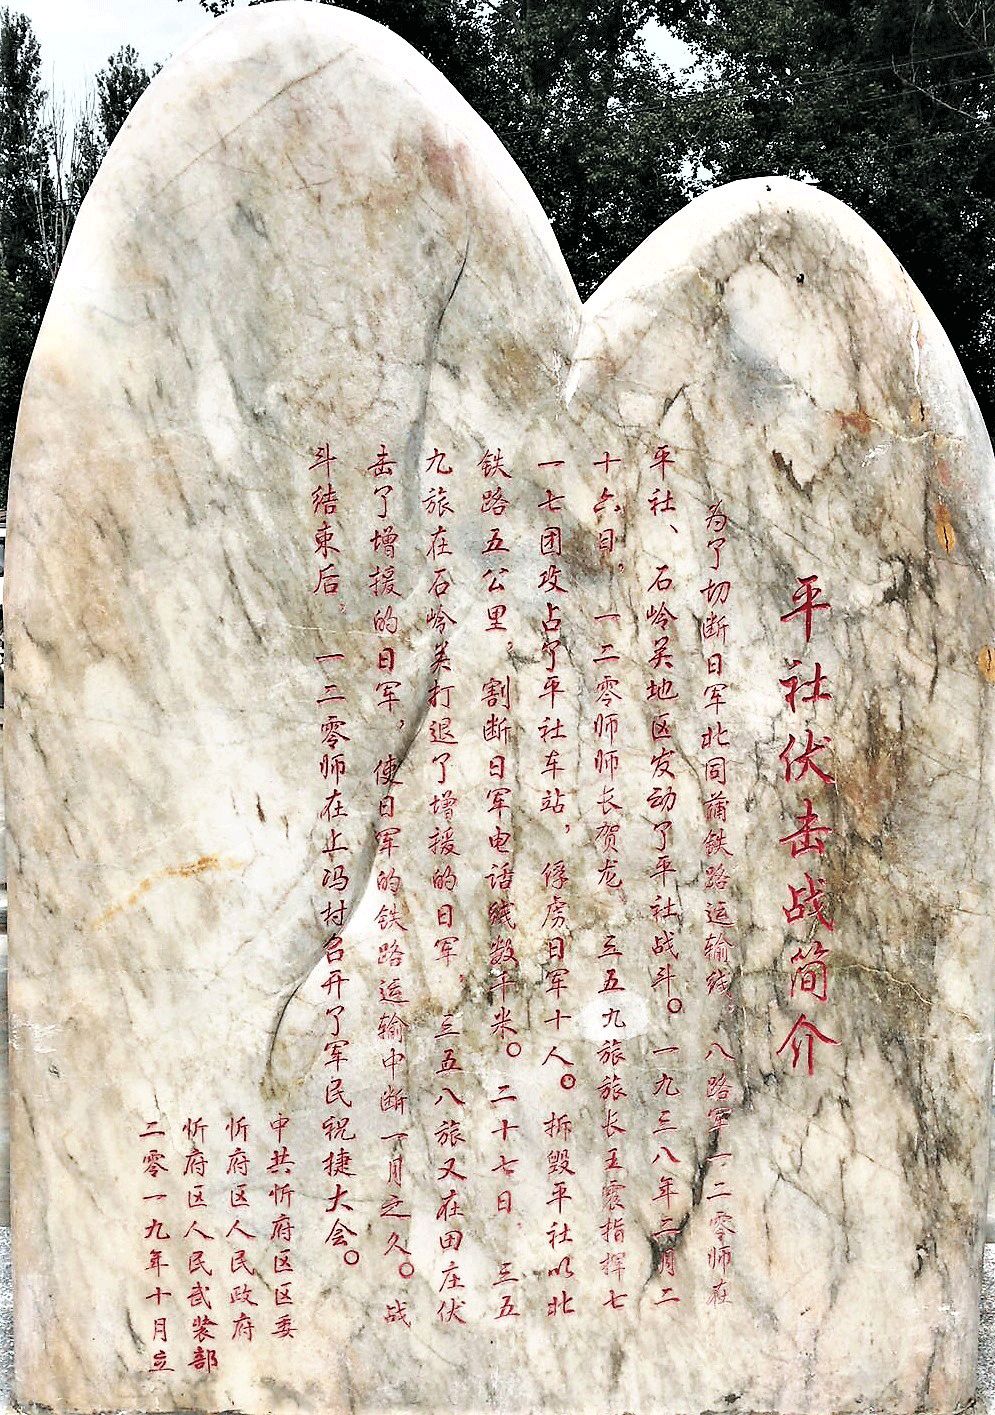 平社伏击战简介
为了切断日军北同蒲铁路运输线，八路军一二零师在
平社、石岭关地区发动了平社战斗。一九三八年二月二
十六日，一二零师师长贺龙、三五九旅旅长王震指挥七
一七团攻占了平社车站，俘虏日军十人。拆毁平社以北
铁路五公里，割断日军电话线数千米。二十七日，三五
九旅在石岭关打退了增援的日军，三五八旅又在田庄伏
击了增援的日军，使日军的铁路运输中断一月之久。战
斗结束后，一二零师在上冯村召开了军民祝捷大会。
中共忻府区区委
忻府区人民政府
忻府区人民武装部
二零一九年十月立